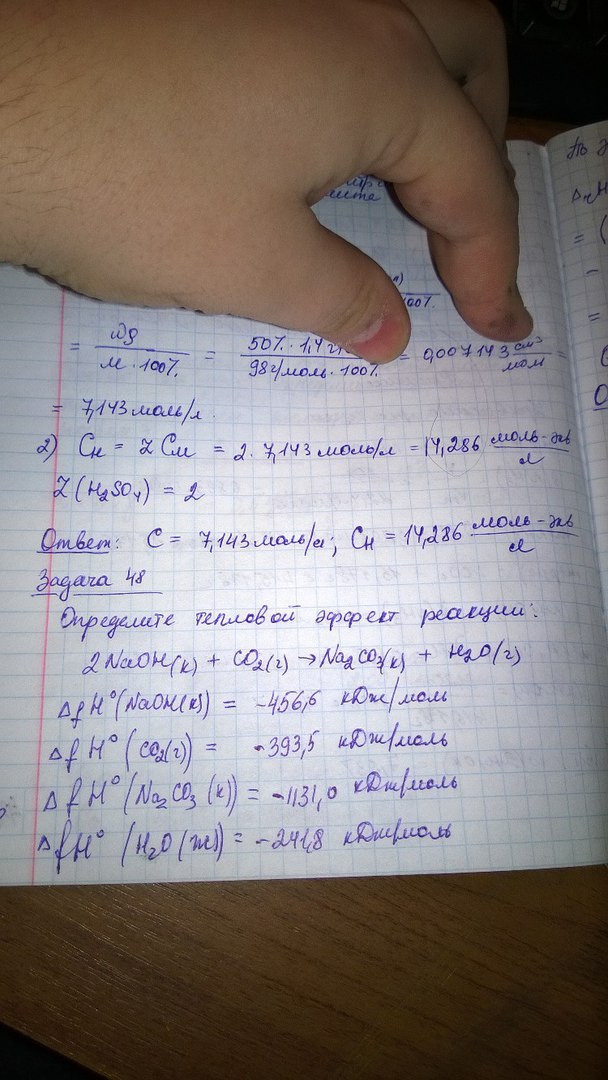 = ωρ / м · 100% = 50% · 1,4 г/ / 98г/моль · 100% = 0,007143 см³ / моль =
= 7,143 моль/л.
2) Cн = Z Cм = 2 · 7,143 моль/л = 14,286 моль-экв / л
Z (H₂SO₄) = 2
Ответ: C = 7,143 моль/л; Cн = 14,286 моль-экв / л
Задача 48
Определите тепловой эффект реакции:
2NaOH(к) + CO₂(г) → Na₂CO₃(к) + H₂O(г)
ΔfH°(NaOH(к)) = -456,6 кДж/моль
ΔfH°(CO₂(г)) = -393,5 кДж/моль
ΔfH°(Na₂CO₃(к)) = -1131,0 кДж/моль
ΔfH°(H₂O(ж)) = -241,8 кДж/моль